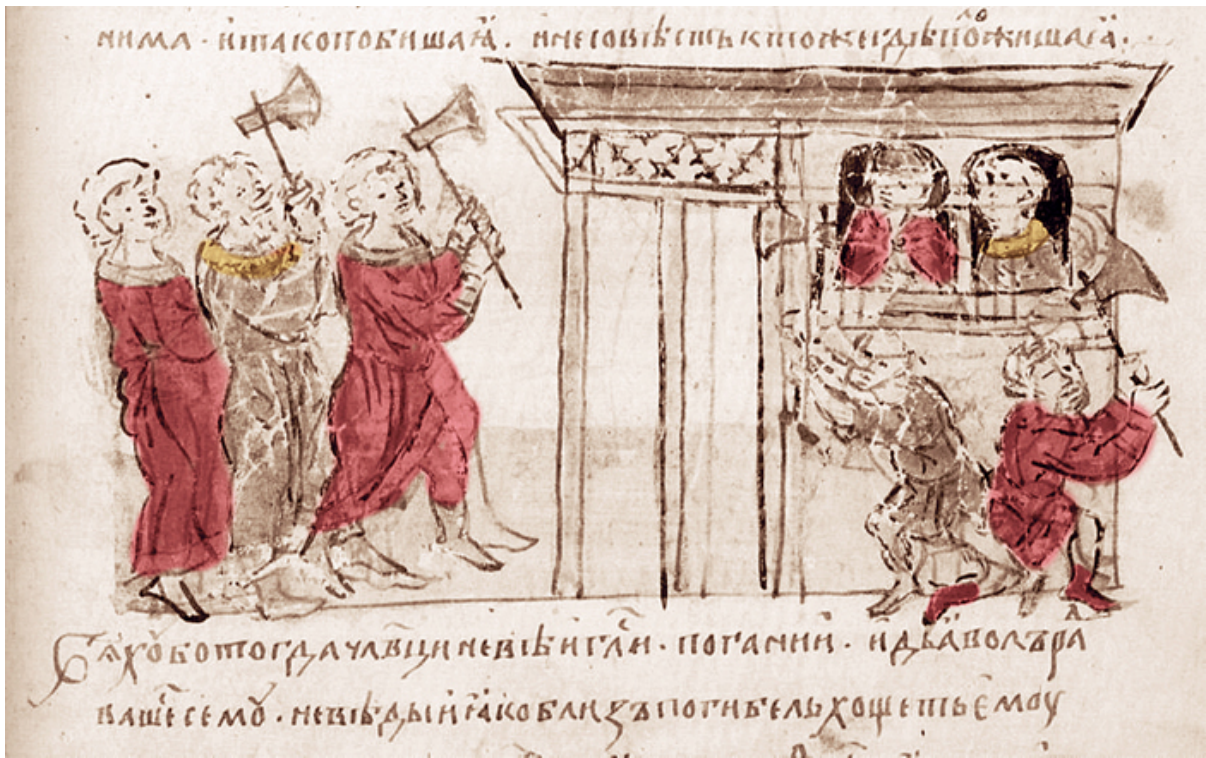 нима · и тако побиша ꙗ · и не совѣсть ктоже гдѣ положиша ꙗ ·
Бѧхоу бо тогда члв҃ци невѣигл҃си · погании · и дьꙗволъ ра
вашеⷭ семоу · не вѣдыи ꙗко близъ погибель хощеть емоу